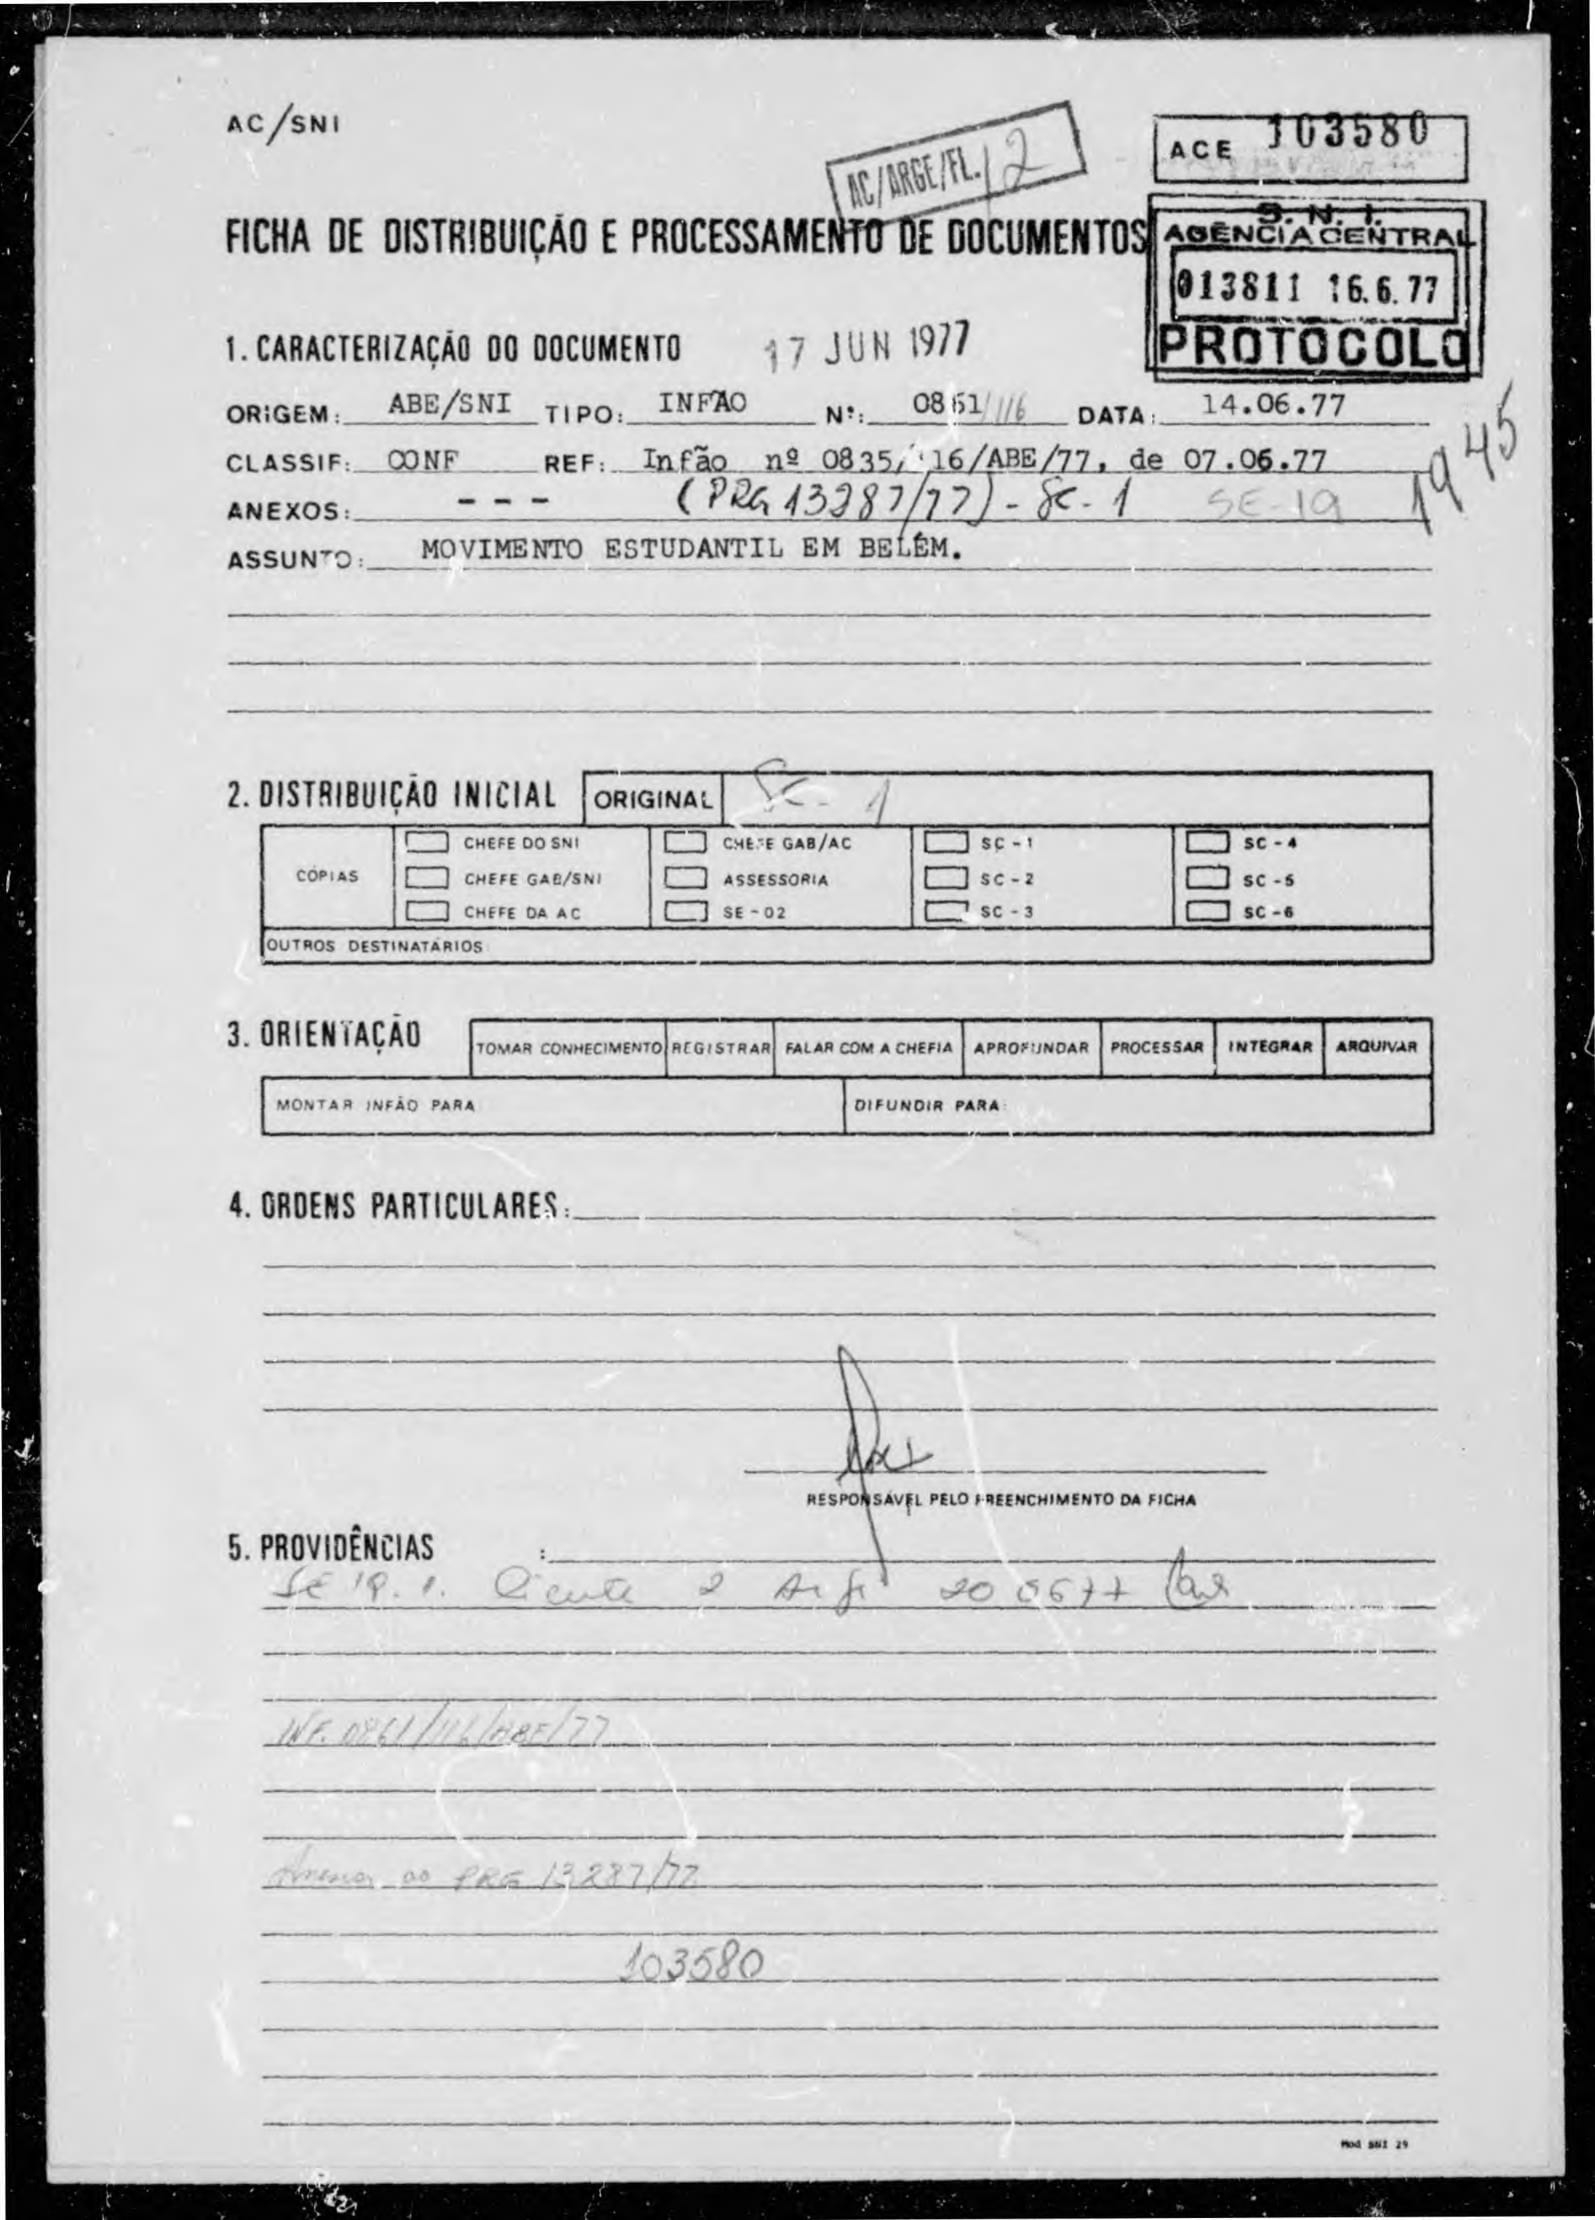 AC/SNI
AC/ARGE/FL. 2
ACE 103580
FICHA DE DISTRIBUIÇÃO E PROCESSAMENTO DE DOCUMENTOS
S. N. I.
AGÊNCIA CENTRAL
013811 16.6.77
PROTOCOLO
1. CARACTERIZAÇÃO DO DOCUMENTO 17 JUN 1977
ORIGEM: ABE/SNI TIPO: INFÃO Nº: 0861/116 DATA: 14.06.77
1945
CLASSIF: CONF REF: Infão nº 0835/116/ABE/77, de 07.06.77
ANEXOS: --- (PRG 13287/77) - SC - 1 SE-19
ASSUNTO: MOVIMENTO ESTUDANTIL EM BELÉM.
2. DISTRIBUIÇÃO INICIAL ORIGINAL SC - 1
CÓPIAS
CHEFE DO SNI CHEFE GAB/AC SC - 1 SC - 4
CHEFE GAB/SNI ASSESSORIA SC - 2 SC - 5
CHEFE DA AC SE - 02 SC - 3 SC - 6
OUTROS DESTINATÁRIOS:
3. ORIENTAÇÃO TOMAR CONHECIMENTO REGISTRAR FALAR COM A CHEFIA APROFUNDAR PROCESSAR INTEGRAR ARQUIVAR
MONTAR INFÃO PARA: DIFUNDIR PARA:
4. ORDENS PARTICULARES:
RESPONSÁVEL PELO PREENCHIMENTO DA FICHA
5. PROVIDÊNCIAS :
SE 19. 1. Ciente 2 200677
INF. 0861/116/ABE/77
Anexar ao PRG 13287/77
103580
Mod SNI 29